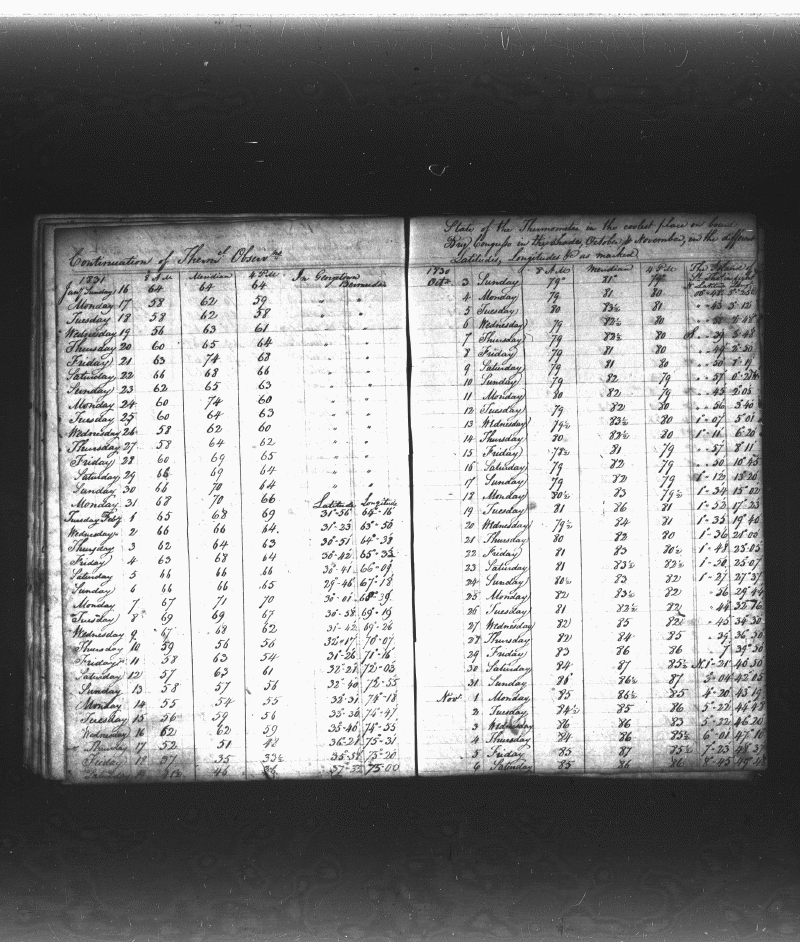 Continuation of Therm.l Observ.ns
1831 8 A.M. Meridian 4 P.M. In Georgetown
Jan.y Sunday 16 64 64 64 Bermuda
Monday 17 58 62 59 " "
Tuesday 18 58 62 58 " "
Wednesday 19 56 63 61 " "
Thursday 20 60 65 64 " "
Friday 21 63 74 68 " "
Saturday 22 66 68 66 " "
Sunday 23 62 65 63 " "
Monday 24 60 74 60 " "
Tuesday 25 60 64 63 " "
Wednesday 26 58 62 60 " "
Thursday 27 58 64 62 " "
Friday 28 60 69 65 " "
Saturday 29 66 69 64 " "
Sunday 30 66 70 64 " "
Monday 31 68 70 66 Latitude Longitude
Tuesday Feb.y 1 65 68 69 31-56 64-16
Wednesday 2 66 66 64 31-23 63-56
Thursday 3 62 64 63 30-51 64-38
Friday 4 63 68 64 30-42 65-35
Saturday 5 66 66 66 30-41 66-09
Sunday 6 66 66 65 29-46 67-18
Monday 7 67 71 70 30-01
Tuesday 8 69 69 67 30-58 69-19
Wednesday 9 67 68 62 31-42 69-26
Thursday 10 59 56 56 32-17 70-07
Friday 11 58 63 54 31-26 71-16
Saturday 12 57 63 61 32-21 72-05
Sunday 13 58 57 56 32-40 72-55
Monday 14 55 54 55 33-31 74-18
Tuesday 15 56 59 56 33-36 74-47
Wednesday 16 62 62 59 35-40 74-55
Thursday 17 52 51 48 36-21 75-31
Friday 18 37 35 33½ 75-20
Saturday 19 46 75-00
State of the Thermometer in the coolest place on board
Brig Congress in the shades, October & November, in the different
Latitudes, Longitudes &c as marked
1830 8 A.M. Meridian 4 P.M.
Oct.r 3 Sunday 79° 81° 79°
4 Monday 79 81 80
5 Tuesday 80 83½ 81
6 Wednesday 79 82½ 80
7 Thursday 79 82½ 80
8 Friday 79 81 80
9 Saturday 79 81 80
10 Sunday 79 82 79
11 Monday 80 82 79 2-05
12 Tuesday 79 82 80 3-40
13 Wednesday 79½ 83½ 80 1-07 5-01
14 Thursday 80 82½ 80 1-11 6-20
15 Friday 78½ 81 79 57 8-11
16 Saturday 79 82 79 50 10-45
17 Sunday 79 82 79 1-12 13-20
18 Monday 80½ 83 79½ 1-34 15-02
19 Tuesday 81 86 81 1-52 17-23
20 Wednesday 79½ 84 81 1-35 19-40
21 Thursday 80 82 80 1-36 21-00
22 Friday 81 83 80½ 1-48 23-05
23 Saturday 81 83½ 82½ 1-30 25-07
24 Sunday 80½ 83 82 1-27 27-37
25 Monday 82 83½ 82 36 29-44
26 Tuesday 81 82½ 82 44 32-16
27 Wednesday 82 85 82½ 45 34-30
28 Thursday 82 84 85 39 36-30
29 Friday 83 86 86 7 39-50
30 Saturday 84 87 85½ N 1-21 40-50
31 Sunday 86 86½ 87 3-04 42-05
Nov.r 1 Monday 85 86½ 85 4-20 43-19
2 Tuesday 84½ 85 86 5-22 44-48
3 Wednesday 86 86 83 5-22 46-20
4 Thursday 84 86 85½ 6-01 47-10
5 Friday 85 87 85½ 7-23 48-37
6 Saturday 85 86 86 8-45